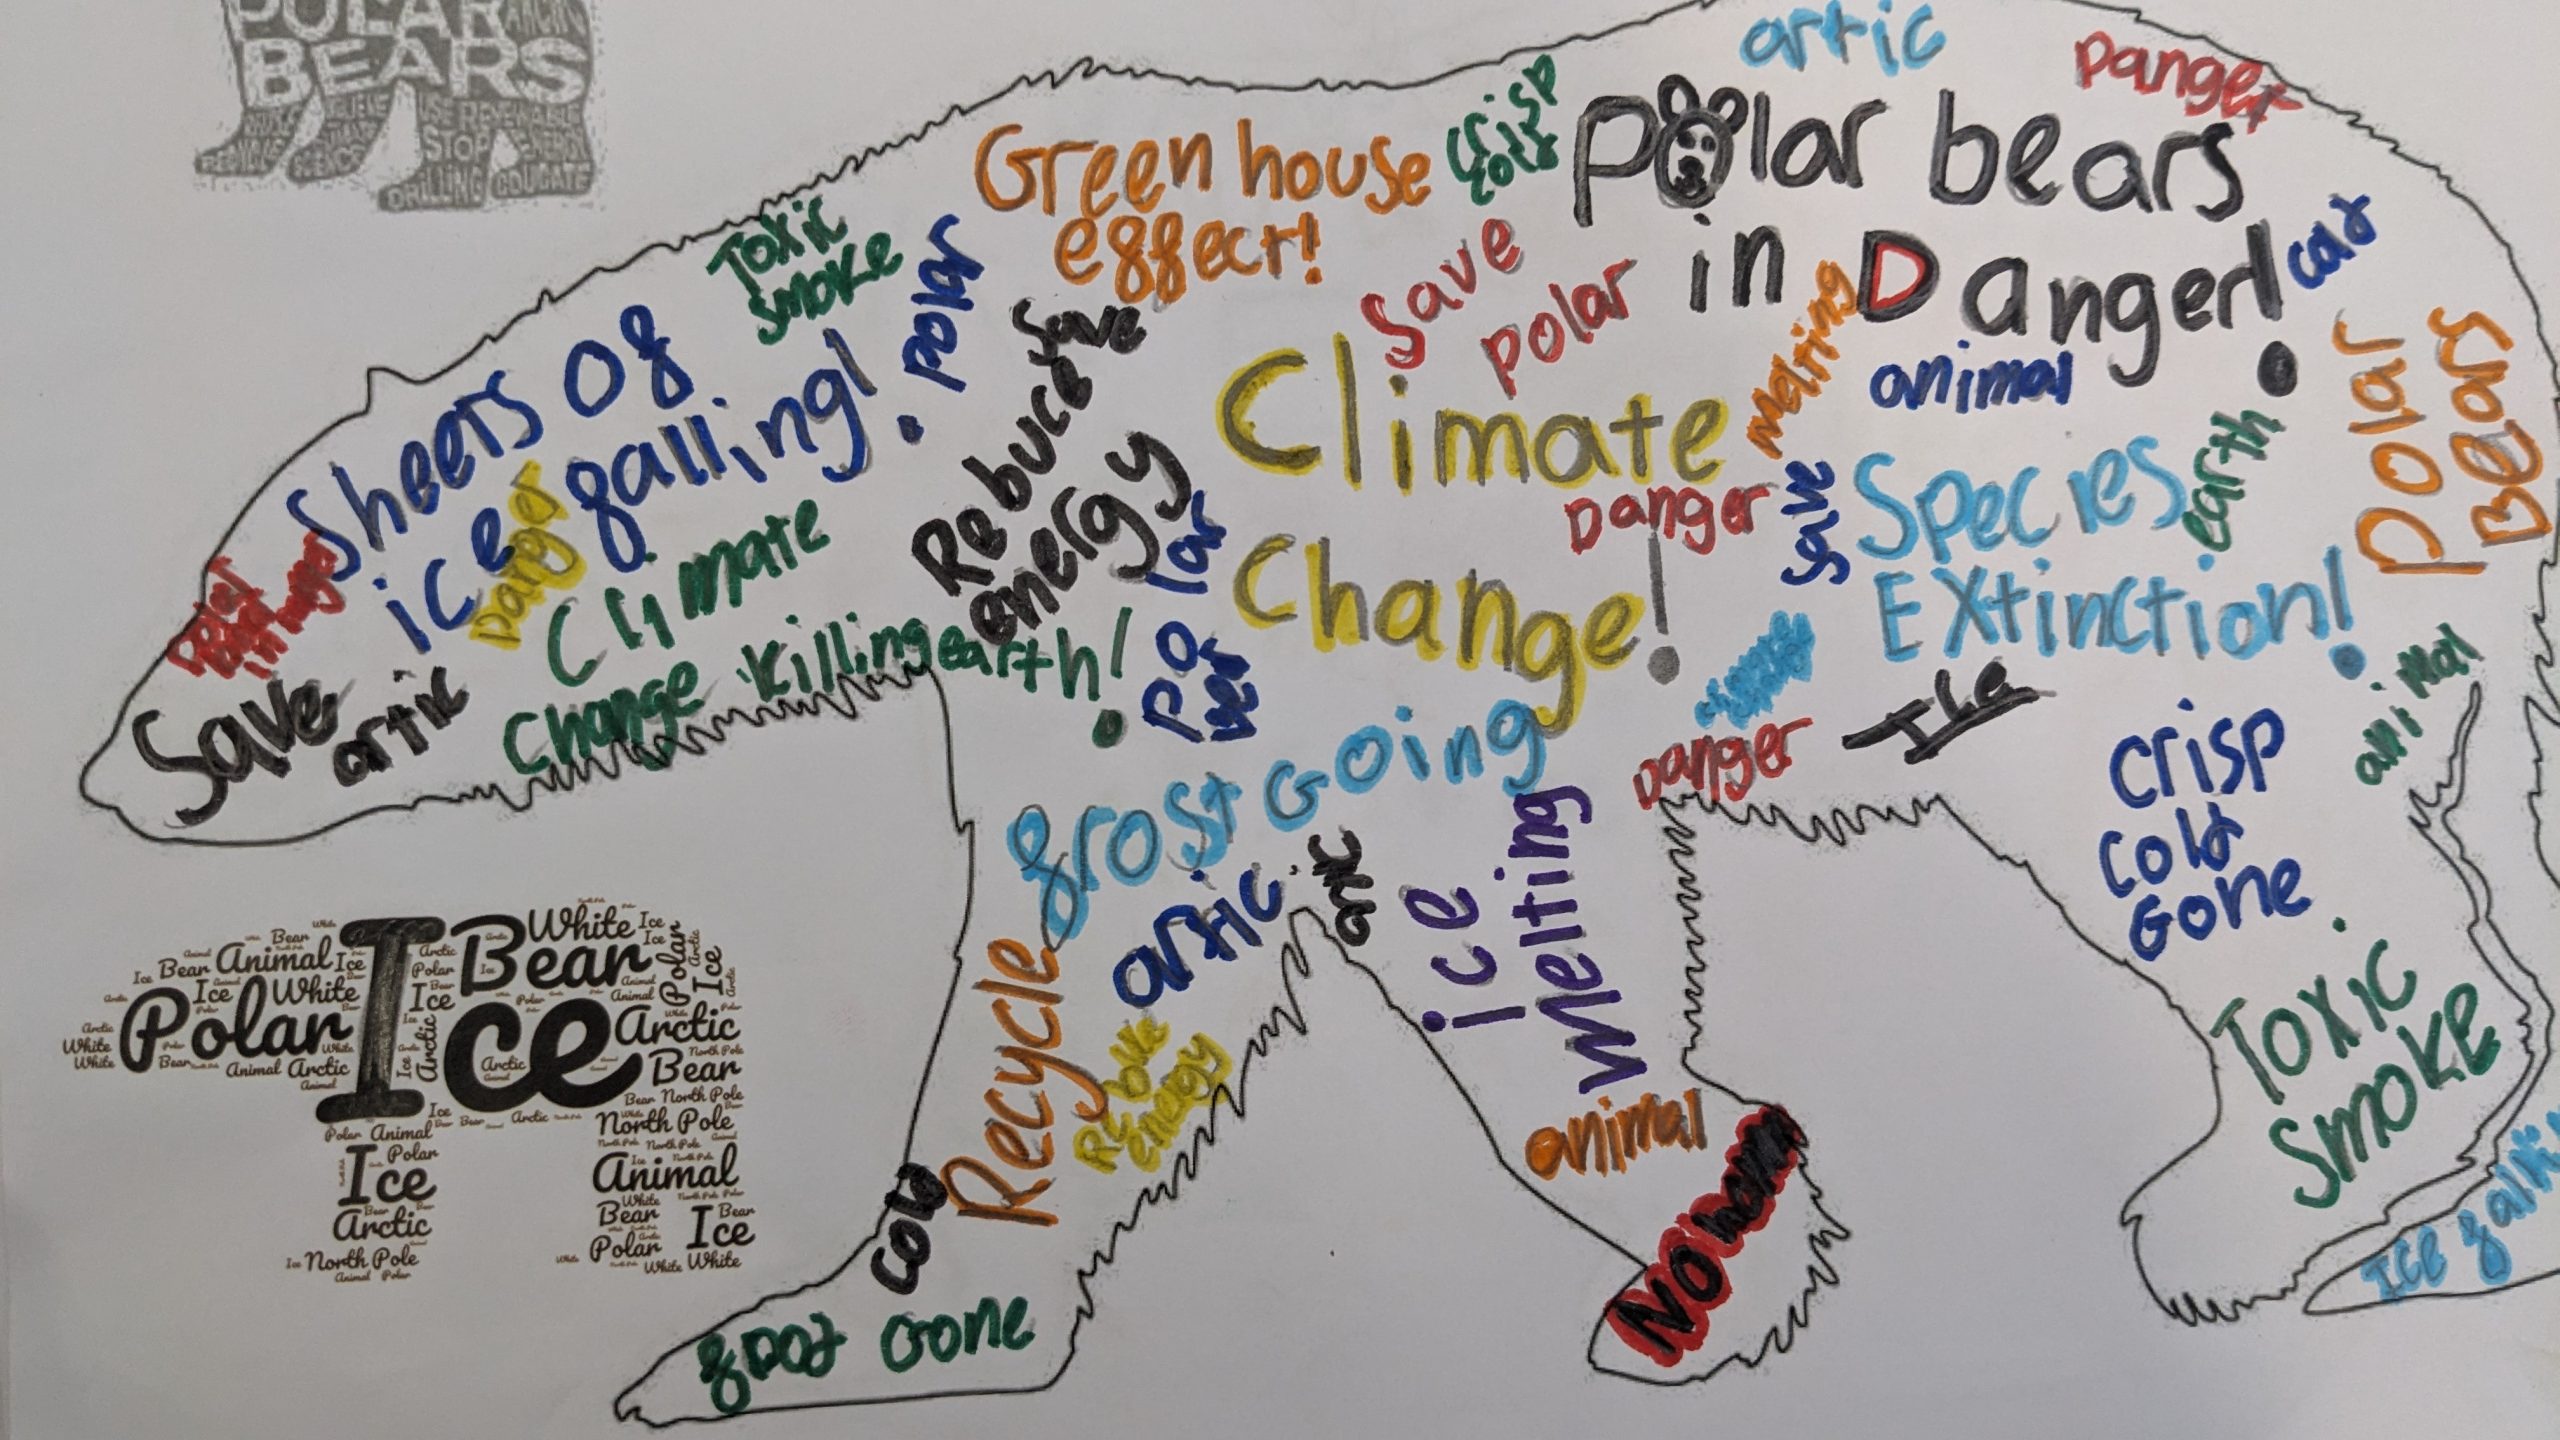 POLAR
BEARS
RECYCLE
SCIENCE
USE RENEWABLE
STOP
ENERGY
DRILLING
EDUCATE
artic
Danger
Polar bears
in Danger!
Crisp
cold
Green house
effect!
Toxic
smoke
polar
Save
polar
cold
melting
animal
Polar
Bears
Sheets of
ice falling!
Save
Reduce
energy
Climate
Change!
Danger
save
Species
Extinction!
earth
Danger
Climate
Change killing earth!
Save
artic
Polar
Danger
Ice
animal
frost Going
artic
artic
ice
melting
Crisp
cold
Gone
Toxic
smoke
Recycle
energy
animal
cold
food Gone
NO home
Ice
Polar
Ice
Bear
White
Ice
Bear
Animal
Ice
White
Arctic
Bear
North Pole
North Pole
Animal
Bear
Polar
Ice
White
Ice
Arctic
North Pole
Animal
Polar